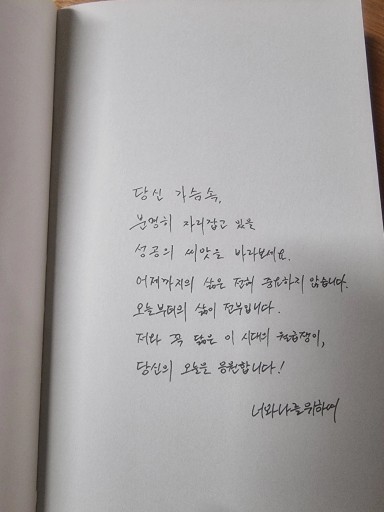 당신 가슴속,
분명히 자리잡고 있을
성공의 씨앗을 바라보세요.
어제까지의 삶은 전혀 중요하지 않습니다.
오늘부터의 삶이 전부입니다.
저와 꼭 닮은 이 시대의 흙수쟁이,
당신의 오늘을 응원합니다!
너와나를위하여